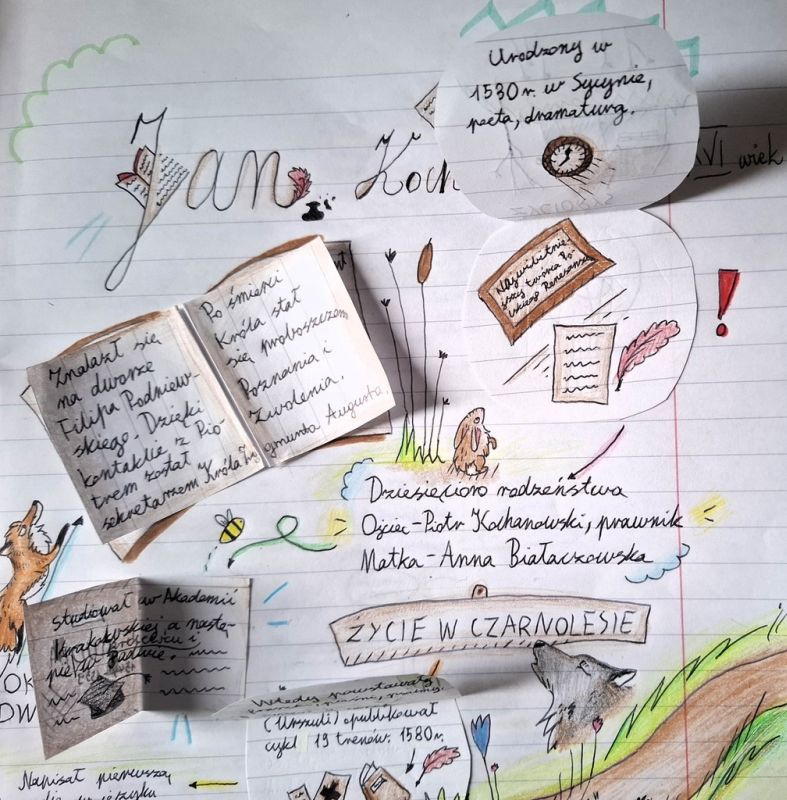 Jan Koch
XVI wiek
Urodzony w
1530 r. w Sycynie,
poeta, dramaturg.
Najwybitnie-
jszy twórca Po-
lskiego Renesansu
Znalazł się
na dworze
Filipa Padniew-
skiego. Dzięki
kontaktie z Pio
trem został
sekretarzem Króla Zy
Po śmierci
Króla stał
się proboszczem
Poznania i
Zwolenia.
gmunta Augusta.
Dziesięcioro rodzeństwa
Ojciec-Piotr Kochanowski, prawnik
Matka-Anna Białaczowska
studiował w Akademii
Krakowskiej a nastę-
pie w Padwie.
ŻYCIE W CZARNOLESIE
Wtedy powstawały
(Urszuli) opublikował
cykl 19 trenów. 1580 r.
Napisał pierwszą